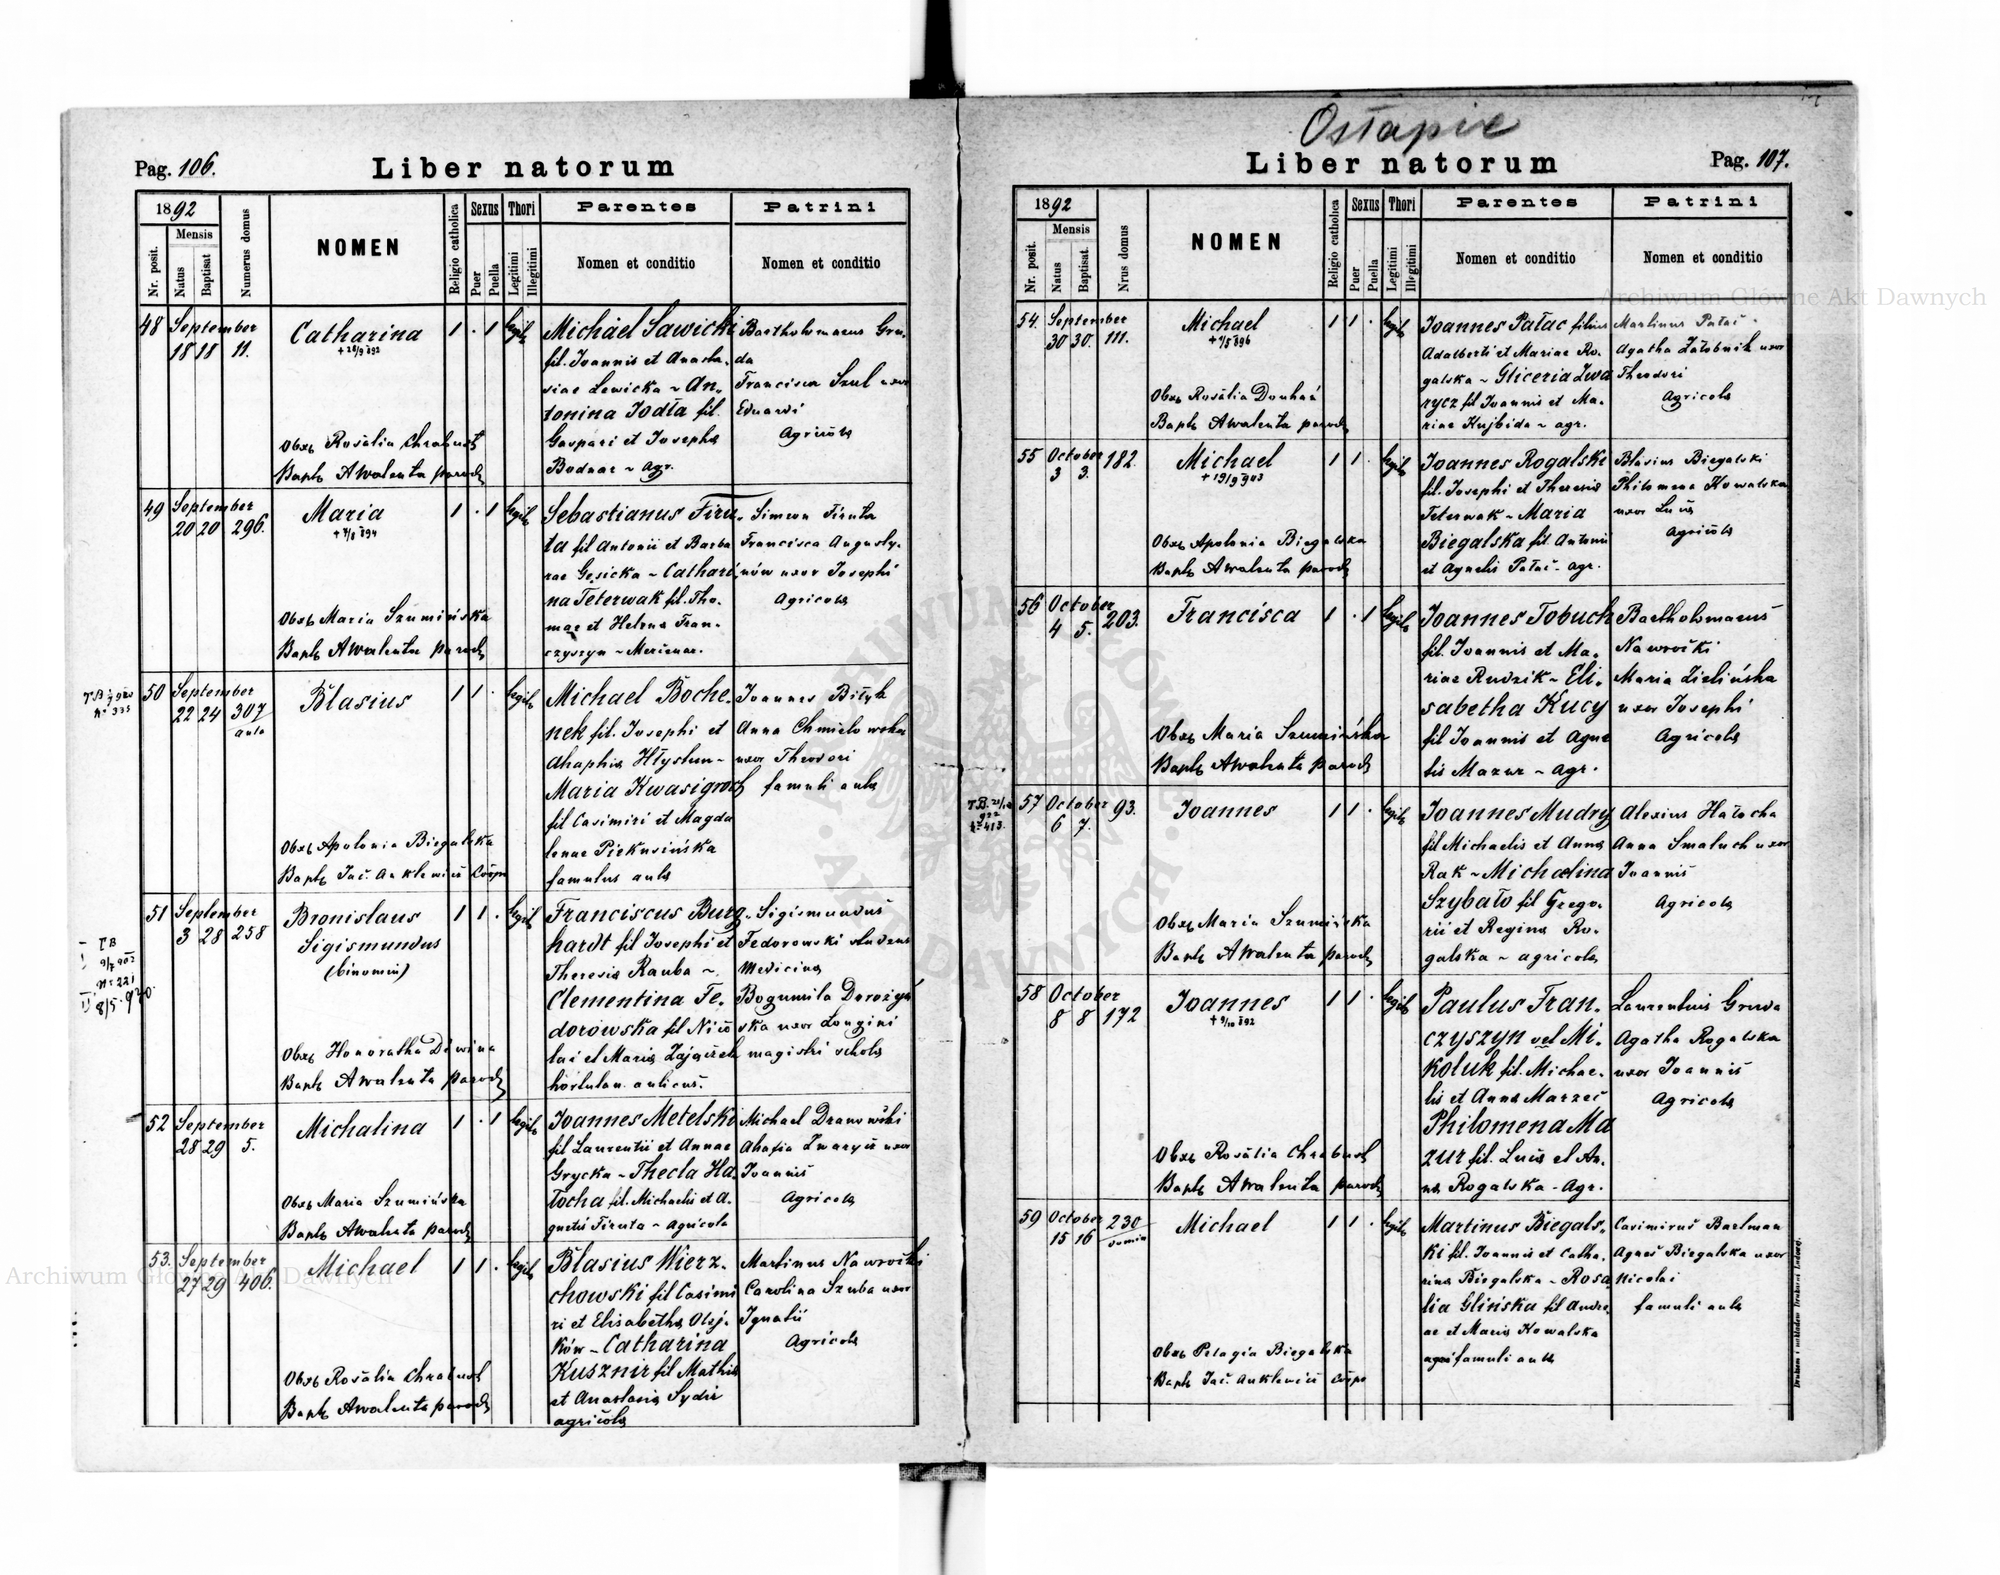 Ostapie
Pag. 106.
Liber natorum
1892
Nr. posit.
Mensis
Natus
Baptisat
Numerus domus
NOMEN
Religio catholica
Sexus
Puer
Puella
Thori
Legitimi
Illegitimi
Parentes
Nomen et conditio
Patrini
Nomen et conditio
48 September
18 18 11.
Catharina
1 . 1 legit
Obst Rosalia Chrabust
Bapt A Walenta paroch
Michael Sawicki
fil. Joannis et Anasta-
siae Lewicka ~ An-
tonina Jodła fil.
Gaspari et Josepha
Bodnar ~ agr.
Bartholomaeus Gru-
da
Francisca Szul uxor
Eduardi
Agricola
49 September
20 20 296.
Maria
1 . 1 legit
Obst Maria Szumińska
Bapt A Walenta paroch
Sebastianus Firu-
ta fil Antonii et Barba
rae Gęsicka ~ Cathari-
na Teterwak fil. Tho-
mae et Helena Fran-
czyszyn ~ Mercenar.
Simeon Firuta
Francisca Augusty-
nów uxor Josephi
Agricola
50 September
22 24 307
aula
Blasius
1 1 . legit
Obst Apolonia Biegalska
Bapt Jac. Anklewicz Coop
Michael Boche-
nek fil. Josephi et
Ahaphia Hłystun ~
Maria Kwasigroch
fil Casimiri et Magda
lenae Piekusińska
famulus aula
Joannes Biłyk
Anna Chmielowska
uxor Theodori
famuli aula
51 September
3 28 258
Bronislaus
Sigismundus
(binomin)
1 1 . legit
Obst Honoratha
Bapt A Walenta paroch
Franciscus Burg-
hardt fil Josephi et
Theresia Rauba ~
Clementina Fe-
dorowska fil Nico
lai et Maria Zajączek
hortulan. aulicus.
Sigismundus
Fedorowski studens
Medicina
Bogumila
ska uxor Longini
magistri schola
52 September
28 29 5.
Michalina
1 . 1 legit
Obst Maria Szumińska
Bapt A Walenta paroch
Joannes Metelski
fil Laurentii et Annae
Grycka ~ Thecla Ha-
łocha fil. Michaelis et A-
gnetis Firuta ~ agricola
Michael Dranowski
Ahafia Zwarycz uxor
Joannis
Agricola
53. September
27 29 406.
Michael
1 1 . legit
Obst Rosalia Chrabust
Bapt A Walenta paroch
Blasius Wierz-
chowski fil Casimi
ri et Elisabetha Olej-
ków ~ Catharina
Kusznir fil Mathia
et Anastasia Sydir
agricola
Martinus Nawrocki
Carolina Szuba uxor
Ignatii
Agricola
Liber natorum
Pag. 107.
1892
Nr. posit.
Mensis
Natus
Baptisat.
Nrus domus
NOMEN
Religio catholica
Sexus
Puer
Puella
Thori
Legitimi
Illegitimi
Parentes
Nomen et conditio
Patrini
Nomen et conditio
54. September
30 30. 111.
Michael
1 1 . legit
Obst Rosalia
Bapt A Walenta paroch
Joannes Pałac filius
Adalberti et Mariae Ro-
galska ~ Gliceria Zwa
rycz fil Joannis et Ma-
riae Kujbida ~ agr.
Martinus Pałac
Agatha Załobnik uxor
Theodori
Agricola
55 October
3 3. 182.
Michael
1 1 . legit
Obst Apolonia Biegalska
Bapt A Walenta paroch
Joannes Rogalski
fil. Josephi et Theresia
Teterwak ~ Maria
Biegalska fil. Antonii
et Agnetis Pałac ~ agr.
Blasius Biegalski
Philomena Kowalska
uxor Lucas
Agricola
56 October
4 5. 203.
Francisca
1 . 1 legit
Obst Maria Szumińska
Bapt A Walenta paroch
Joannes Tobuch
fil. Joannis et Ma-
riae Rudzik ~ Eli-
sabetha Kucy
fil Joannis et Agne
tis Mazur ~ agr.
Bartholomaeus
Nawrocki
Maria Zielińska
uxor Josephi
Agricola
57 October
6 7. 93.
Joannes
1 1 . legit
Obst Maria Szumińska
Bapt A Walenta paroch
Joannes Mudry
fil Michaelis et Anna
Rak ~ Michalina
Szybało fil Grego-
rii et Regina Ro-
galska ~ agricola
Alexius Hałocha
Anna Smaluch uxor
Joannis
Agricola
58 October
8 8 172
Joannes
+ 9/10 892
1 1 . legit
Obst Rosalia Chrabust
Bapt A Walenta paroch
Paulus Fran-
czyszyn vel Mi-
koluk fil. Michae-
lis et Anna Marzec
Philomena Ma
zur fil. Lucas et An-
na Rogalska ~ Agr.
Laurentius Gruda
Agatha Rogalska
uxor Joannis
Agricola
59 October
15 16 230
Michael
1 1 . legit
Obst Pelagia Biegalska
Bapt Jac. Anklewicz Coop
Martinus Biegals-
ki fil. Joannis et Catha-
rina Biegalska ~ Rosa
lia Glińska fil Andre-
ae et Maria Kowalska
famuli aula
Casimirus Bartman
Agnes Biegalska uxor
Nicolai
famuli aula
Archiwum Główne Akt Dawnych
Archiwum Główne Akt Dawnych